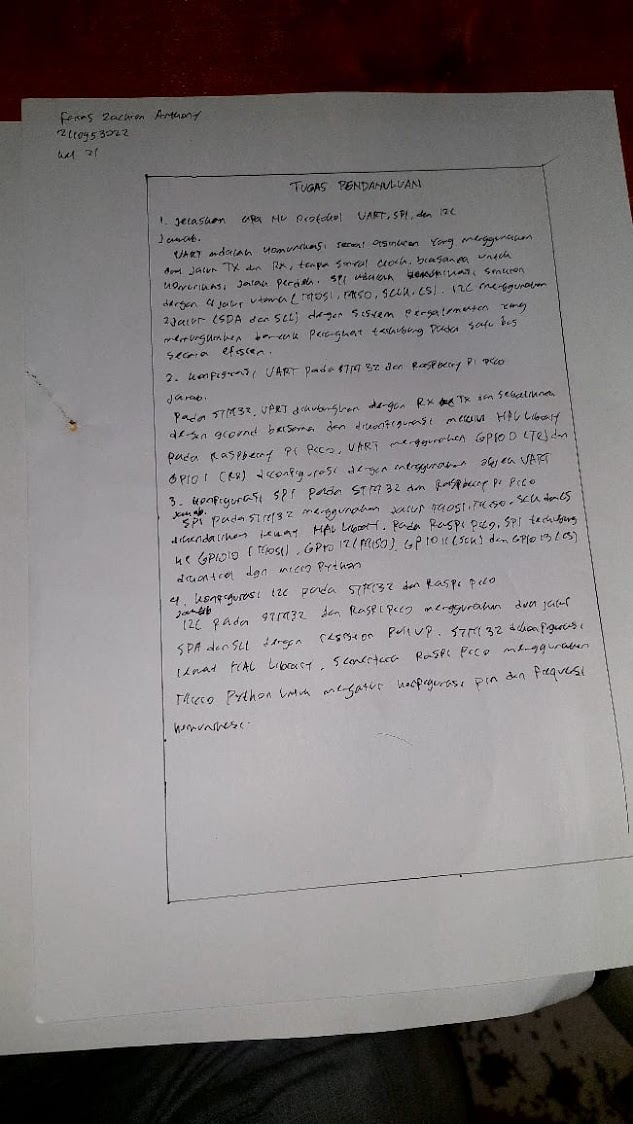 2110953022
TUGAS PENDAHULUAN
1. Jelaskan apa itu Protokol UART, SPI, dan I2C
Jawab.
UART adalah komunikasi serial asinkron yang menggunakan
dua jalur TX dan RX, tanpa sinyal clock, biasanya untuk
komunikasi jarak pendek. SPI adalah komunikasi sinkron
dengan 4 jalur utama (MOSI, MISO, SCLK, CS). I2C menggunakan
2 jalur (SDA dan SCL) dengan sistem pengalamatan yang
memungkinkan banyak perangkat terhubung pada satu bus
secara efisien.
2. Konfigurasi UART pada STM32 dan Raspberry Pi Pico
Jawab.
Pada STM32, UART dihubungkan dengan RX TX dan sebaliknya
dengan ground bersama dan dikonfigurasi melalui HAL Library
pada Raspberry Pi Pico, UART menggunakan GPIO0 (TX) dan
GPIO1 (RX) dikonfigurasi dengan menggunakan objek UART
3. Konfigurasi SPI pada STM32 dan Raspberry Pi Pico
Jawab.
SPI pada STM32 menggunakan jalur MOSI, MISO, SCK dan CS
dikendalikan lewat HAL Library. Pada Raspi Pico, SPI terhubung
ke GPIO10 (MOSI), GPIO12 (MISO), GPIO11 (SCK) dan GPIO13 (CS)
dikontrol dgn Micro Python
4. Konfigurasi I2C pada STM32 dan Raspi Pico
Jawab
I2C pada STM32 dan Raspi Pico menggunakan dua jalur
SPA dan SCL dengan resistor Pull UP. STM32 dikonfigurasi
lewat HAL Library, Sementara Raspi Pico menggunakan
Micro Python untuk mengatur konfigurasi pin dan frequensi
komunikasi.